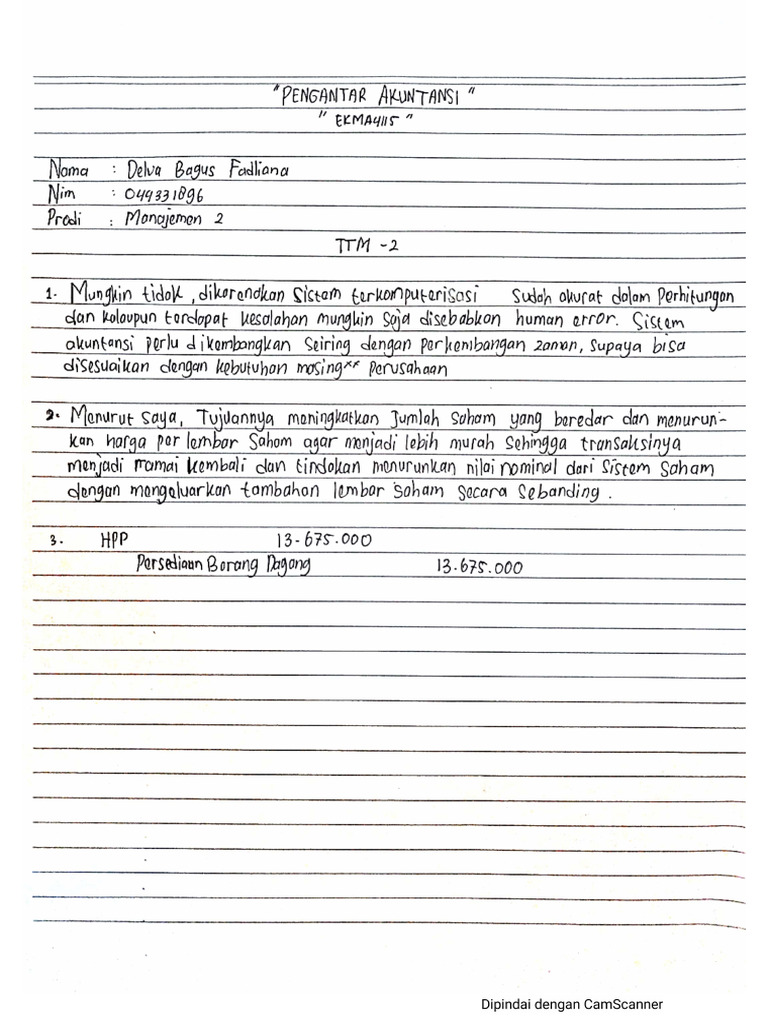 "PENGANTAR AKUNTANSI"
"EKMA4115"
Nama : Delva Bagus Fadliana
Nim : 044331896
Prodi : Manajemen 2
TTM -2
1. Mungkin tidak, dikarenakan Sistem terkomputerisasi Sudah akurat dalam Perhitungan
dan kalaupun terdapat kesalahan mungkin saja disebabkan human error. Sistem
akuntansi perlu dikembangkan Seiring dengan perkembangan zaman, supaya bisa
disesuaikan dengan kebutuhan masing** perusahaan
2. Menurut saya, Tujuannya meningkatkan Jumlah Saham yang beredar dan menurun-
kan harga per lembar Saham agar menjadi lebih murah Sehingga transaksinya
menjadi ramai kembali dan tindakan menurunkan nilai nominal dari Sistem Saham
dengan mengeluarkan tambahan lembar Saham Secara Sebanding.
3. HPP 13.675.000
Persediaan Barang Dagang 13.675.000
Dipindai dengan CamScanner